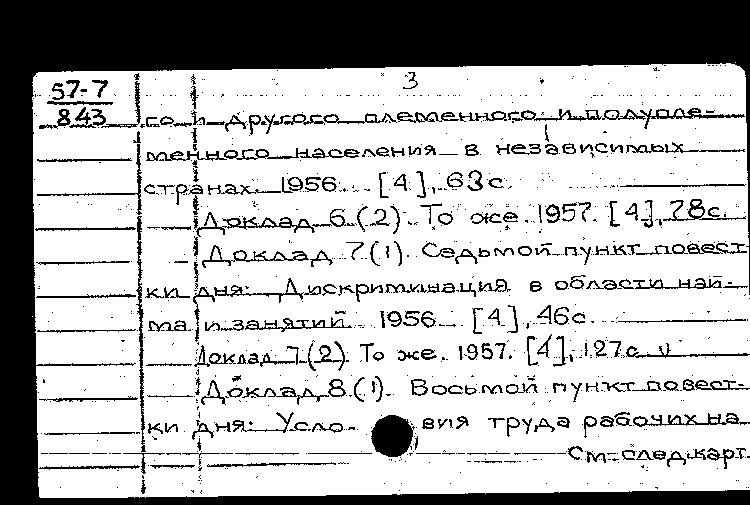 57-7
843
3
го и другого племенного и полупле-
менного населения в независимых
странах. 1956. [4], 63 с.
Доклад 6 (2). То же. 1957. [4], 78 с.
Доклад 7 (1). Седьмой пункт повест
ки дня: Дискриминация в области най-
ма и занятий. 1956. [4], 46 с.
Доклад 7 (2). То же. 1957. [4], 127 с.
Доклад 8 (1). Восьмой пункт повест-
ки дня: Усло- вия труда рабочих на
См. след. карт